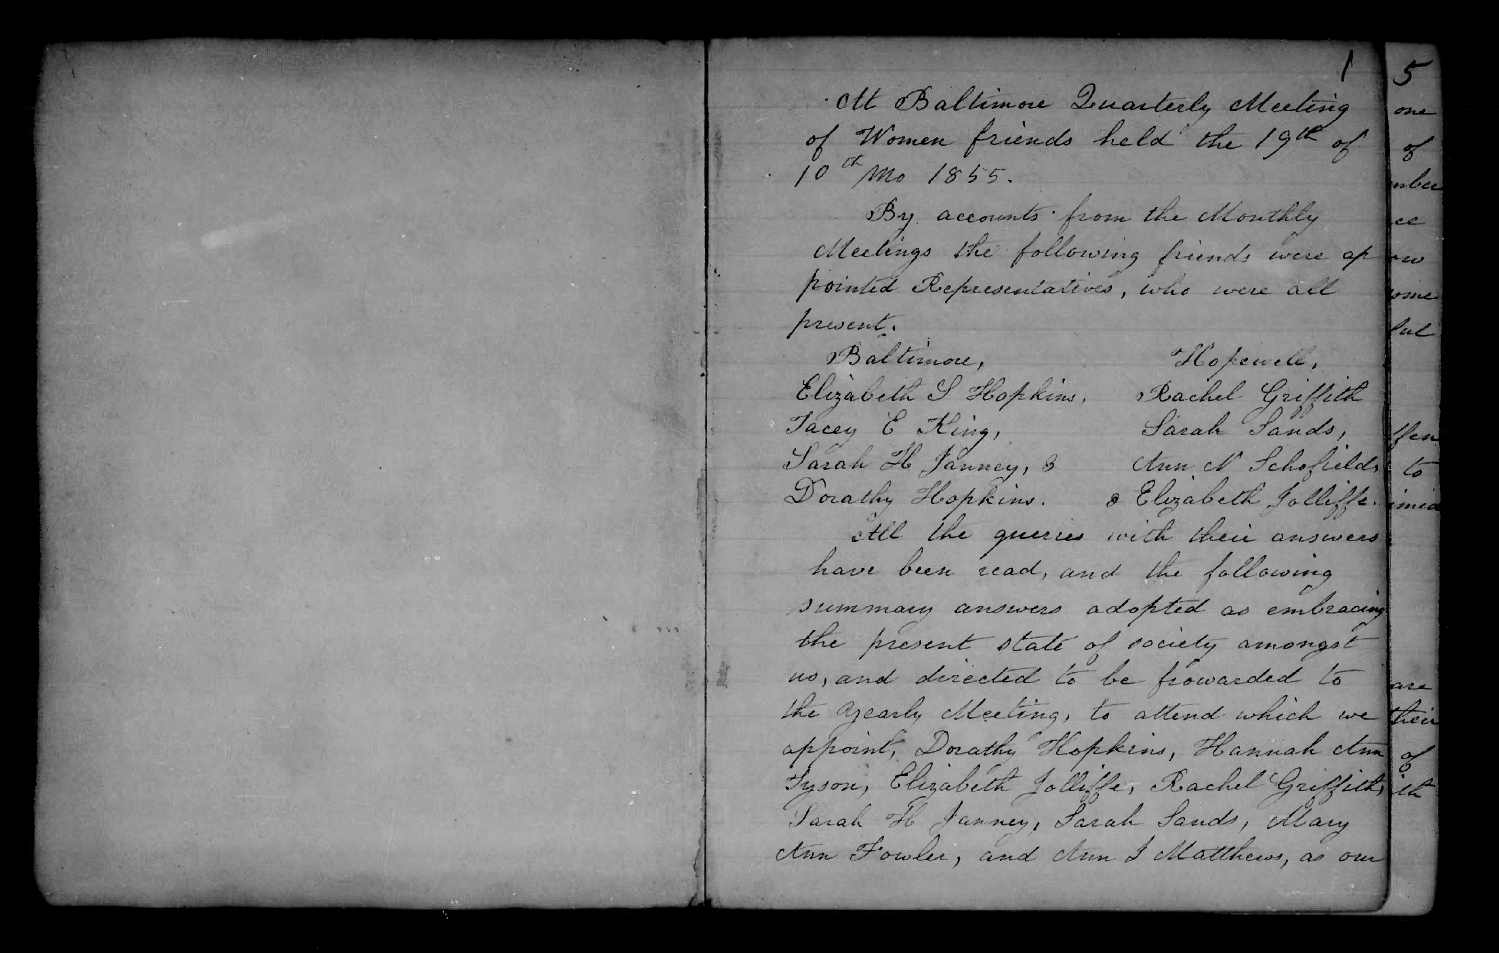 1
At Baltimore Quarterly Meeting
of Women friends held the 19th of
10th Mo 1855.
By accounts from the Monthly
Meetings the following friends were ap
pointed Representatives, who were all
present.
Baltimore, Hopewell,
Elizabeth S Hopkins, Rachel Griffith
Tacey E King, Sarah Sands,
Sarah H Janney, & Ann N Schofield,
Dorathy Hopkins. & Elizabeth Jolliffe.
All the queries with their answers
have been read, and the following
summary answers adopted as embracing
the present state of society amongst
us, and directed to be frowarded to
the Yearly Meeting, to attend which we
appoint, Dorathy Hopkins, Hannah Ann
Tyson, Elizabeth Jolliffe, Rachel Griffith,
Sarah H Janney, Sarah Sands, Mary
Ann Fowler, and Ann J Matthews, as our
5
one
of
ce
to
are
their
of